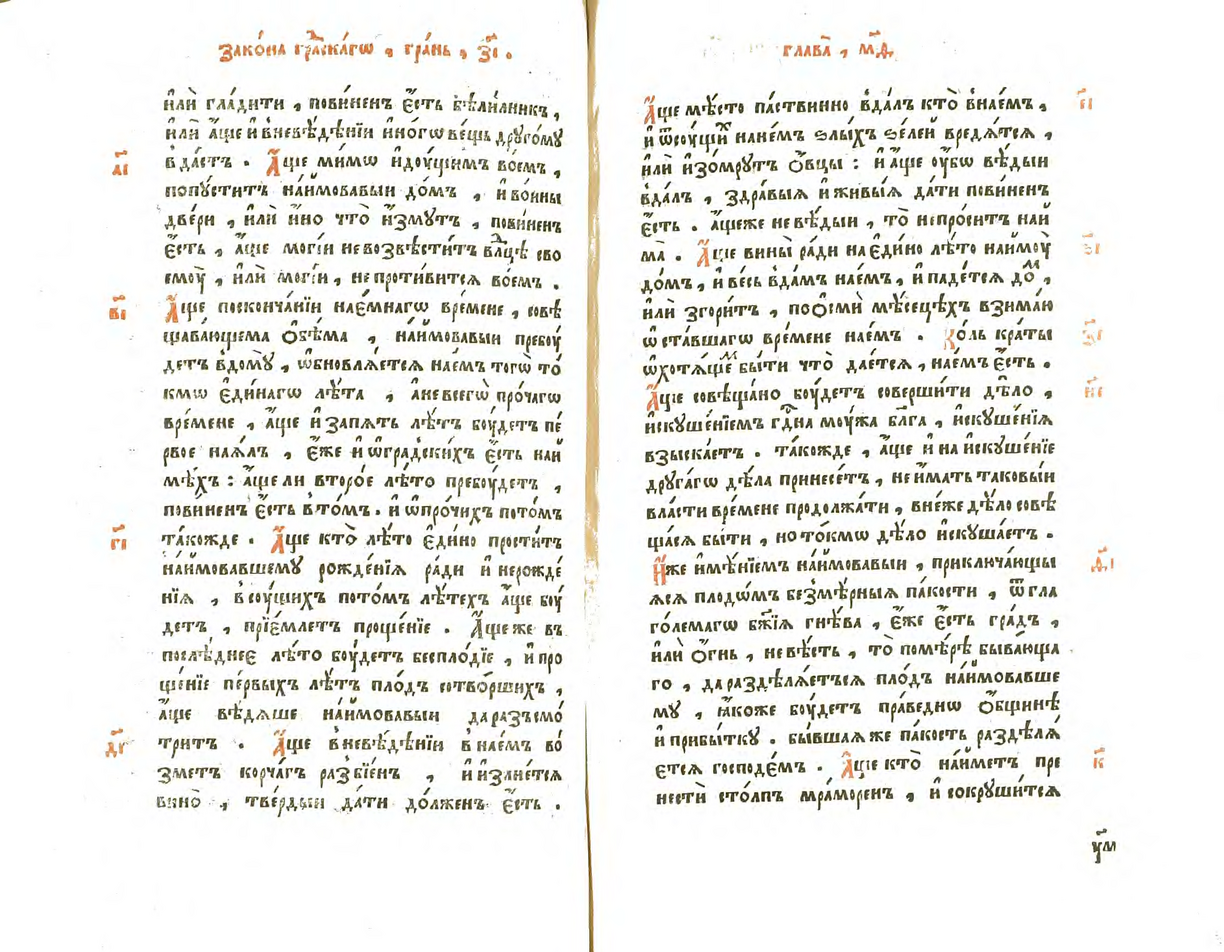 Зако́на гра́дскагѡ , гра́нь , з҃і .
и҆лѝ гла́дити , пови́ненъ є҆́сть бѣли́лникъ ,
и҆лѝ а҆́ще и҆ вневѣ́дѣнїи и҆но́гѡ ве́щь друго́му
вда́стъ . А҆́ще ми́мѡ и҆дꙋ́щимъ во́емъ ,
попꙋ́ститъ наи́мовавыи до́мъ , и҆ во́ины
две́ри , и҆лѝ и҆́но что̀ и҆́змутъ , пови́ненъ
є҆́сть , а҆́ще моги́и невозвѣсти́тъ влⷣцѣ сво
емоу̀ , и҆лѝ моги́и , непроти́вится во́емъ .
А҆́ще посконча́нїи нае́мнагѡ вре́мене , совѣ
щава́ющема ѻ҆бѣ́ма , наи́мовавыи пребоу́
детъ вдо́мꙋ , ѡ҆бновлѧ́ется нае́мъ тогѡ̀ то́
кмѡ є҆ди́нагѡ лѣ́та , а҆невсегѡ̀ про́чагѡ
вре́мене , а҆́ще и҆ запѧ́ть лѣ́тъ боу́детъ пе́
рвое наѧ́лъ , є҆́же и҆ ѡ҆гра́дскихъ є҆́сть наи́
мѣхъ : а҆́ще ли второ́е лѣ́то пребоу́детъ ,
пови́ненъ є҆́сть вто́мъ . и҆ ѡ҆про́чихъ пото́мъ
та́кожде . А҆́ще кто̀ лѣ́то є҆ди́но прости́тъ
наи́мовавшемꙋ рожде́нїѧ ра́ди и҆ нерожде́
нїѧ , всꙋ́щихъ пото́мъ лѣ́техъ а҆́ще боу́
детъ , прїе́млетъ проще́нїе . А҆́ще же въ
послѣ́днее лѣ́то боу́детъ беспло́дїе , и҆ про
ще́нїе пе́рвыхъ лѣ́тъ пло́дъ сотво́ршихъ ,
а҆́ще вѣ́дѧше наи́мовавыи да разъсмо́
тритъ . А҆́ще вневѣ́дѣнїи внае́мъ во́
зметъ корча́гъ разбїе́нъ , и҆ и҆злїе́тся
вино̀ , тве́рдыи да́ти до́лженъ є҆́сть .
а҃і
в҃і
г҃і
д҃і
Глава̀ , м҃д .
А҆́ще мѣ́сто па́ствинно вда́лъ кто̀ внае́мъ ,
и҆ ѿсꙋ́щиⷯ нане́мъ ѕлы́хъ ѕе́леи вредѧ́тся ,
и҆лѝ и҆зо́мрутъ ѻ҆́вцы : и҆ а҆́ще оу҆́бѡ вѣ́дыи
вда́лъ , здра́выѧ и҆ живы́ѧ да́ти пови́ненъ
є҆́сть . а҆́щеже невѣ́дыи , то̀ непро́ситъ наи́
ма̀ . А҆́ще вины̀ ра́ди на є҆ди́но лѣ́то наимоу̀
до́мъ , и҆ ве́сь вда́мъ нае́мъ , и҆ паде́тся доⷨ ,
и҆лѝ згори́тъ , поѻ҆сми́ мѣ́сецѣхъ взима́ю
ѡ҆ста́вшагѡ вре́мене нае́мъ . Ко́ль кра́ты
ѡ҆хотѧ́щеⷨ бы́ти что̀ дае́тся , нае́мъ є҆́сть .
А҆́ще совѣща́но боу́детъ соверши́ти дѣ́ло ,
и҆скꙋше́нїемъ гⷭ҇дна моу́жа бл҃га , и҆скꙋше́нїѧ
взыска́етъ . та́кожде , а҆́ще и҆ на и҆скꙋше́нїе
дрꙋга́гѡ дѣ́ла принесе́тъ , не и҆́мать таковы́и
вла́сти вре́мене продолжа́ти , внеже дѣ́ло совѣ
ща́сѧ бы́ти , но то́кмѡ дѣ́ло и҆скꙋша́етъ .
И҆́же и҆мѣ́нїемъ наи́мовавыи , приключа́ющы
ѧсѧ плодѡ́мъ безмѣ́рныѧ па́кости , ѿ гла
го́лемагѡ бж҃їѧ гнѣ́ва , є҆́же є҆́сть гра́дъ ,
и҆лѝ ѻ҆́гнь , невѣ́сть , то̀ помѣ́рѣ быва́юща
го , да раздѣлѧ́етъсѧ пло́дъ наи́мовавше
мꙋ , ꙗ҆́коже боу́детъ пра́веднѡ ѻ҆́бщинѣ
и҆ прибы́тку . бы́вшаѧ же па́кость раздѣлѧ́
ется господе́мъ . А҆́ще кто̀ наи́метъ пре
нестѝ сто́лпъ мра́моренъ , и҆ сокрꙋши́тся
е҃і
ѕ҃і
з҃і
и҃і
ѳ҃і
к҃
у҃м